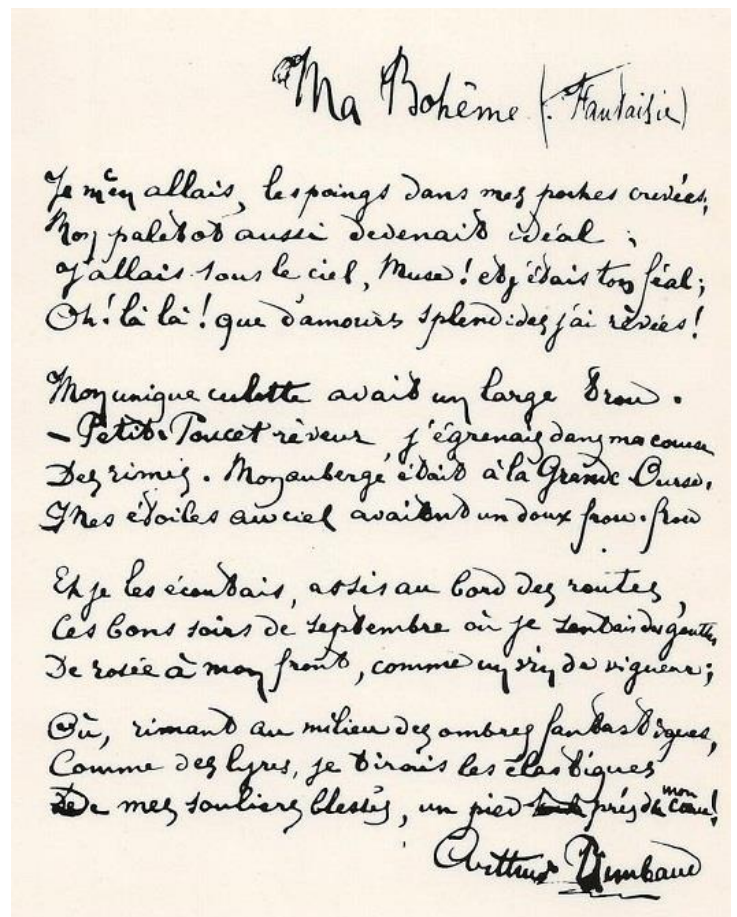 Ma Bohême (Fantaisie)
Je m'en allais, les poings dans mes poches crevées;
Mon paletot aussi devenait idéal;
J'allais sous le ciel, Muse! et j'étais ton féal;
Oh! là là! que d'amours splendides j'ai rêvées!
Mon unique culotte avait un large trou.
– Petit-Poucet rêveur, j'égrenais dans ma course
Des rimes. Mon auberge était à la Grande-Ourse.
Mes étoiles au ciel avaient un doux frou-frou
Et je les écoutais, assis au bord des routes,
Ces bons soirs de septembre où je sentais des gouttes
De rosée à mon front, comme un vin de vigueur;
Où, rimant au milieu des ombres fantastiques,
Comme des lyres, je tirais les élastiques
De mes souliers blessés, un pied près de mon cœur!
Arthur Rimbaud